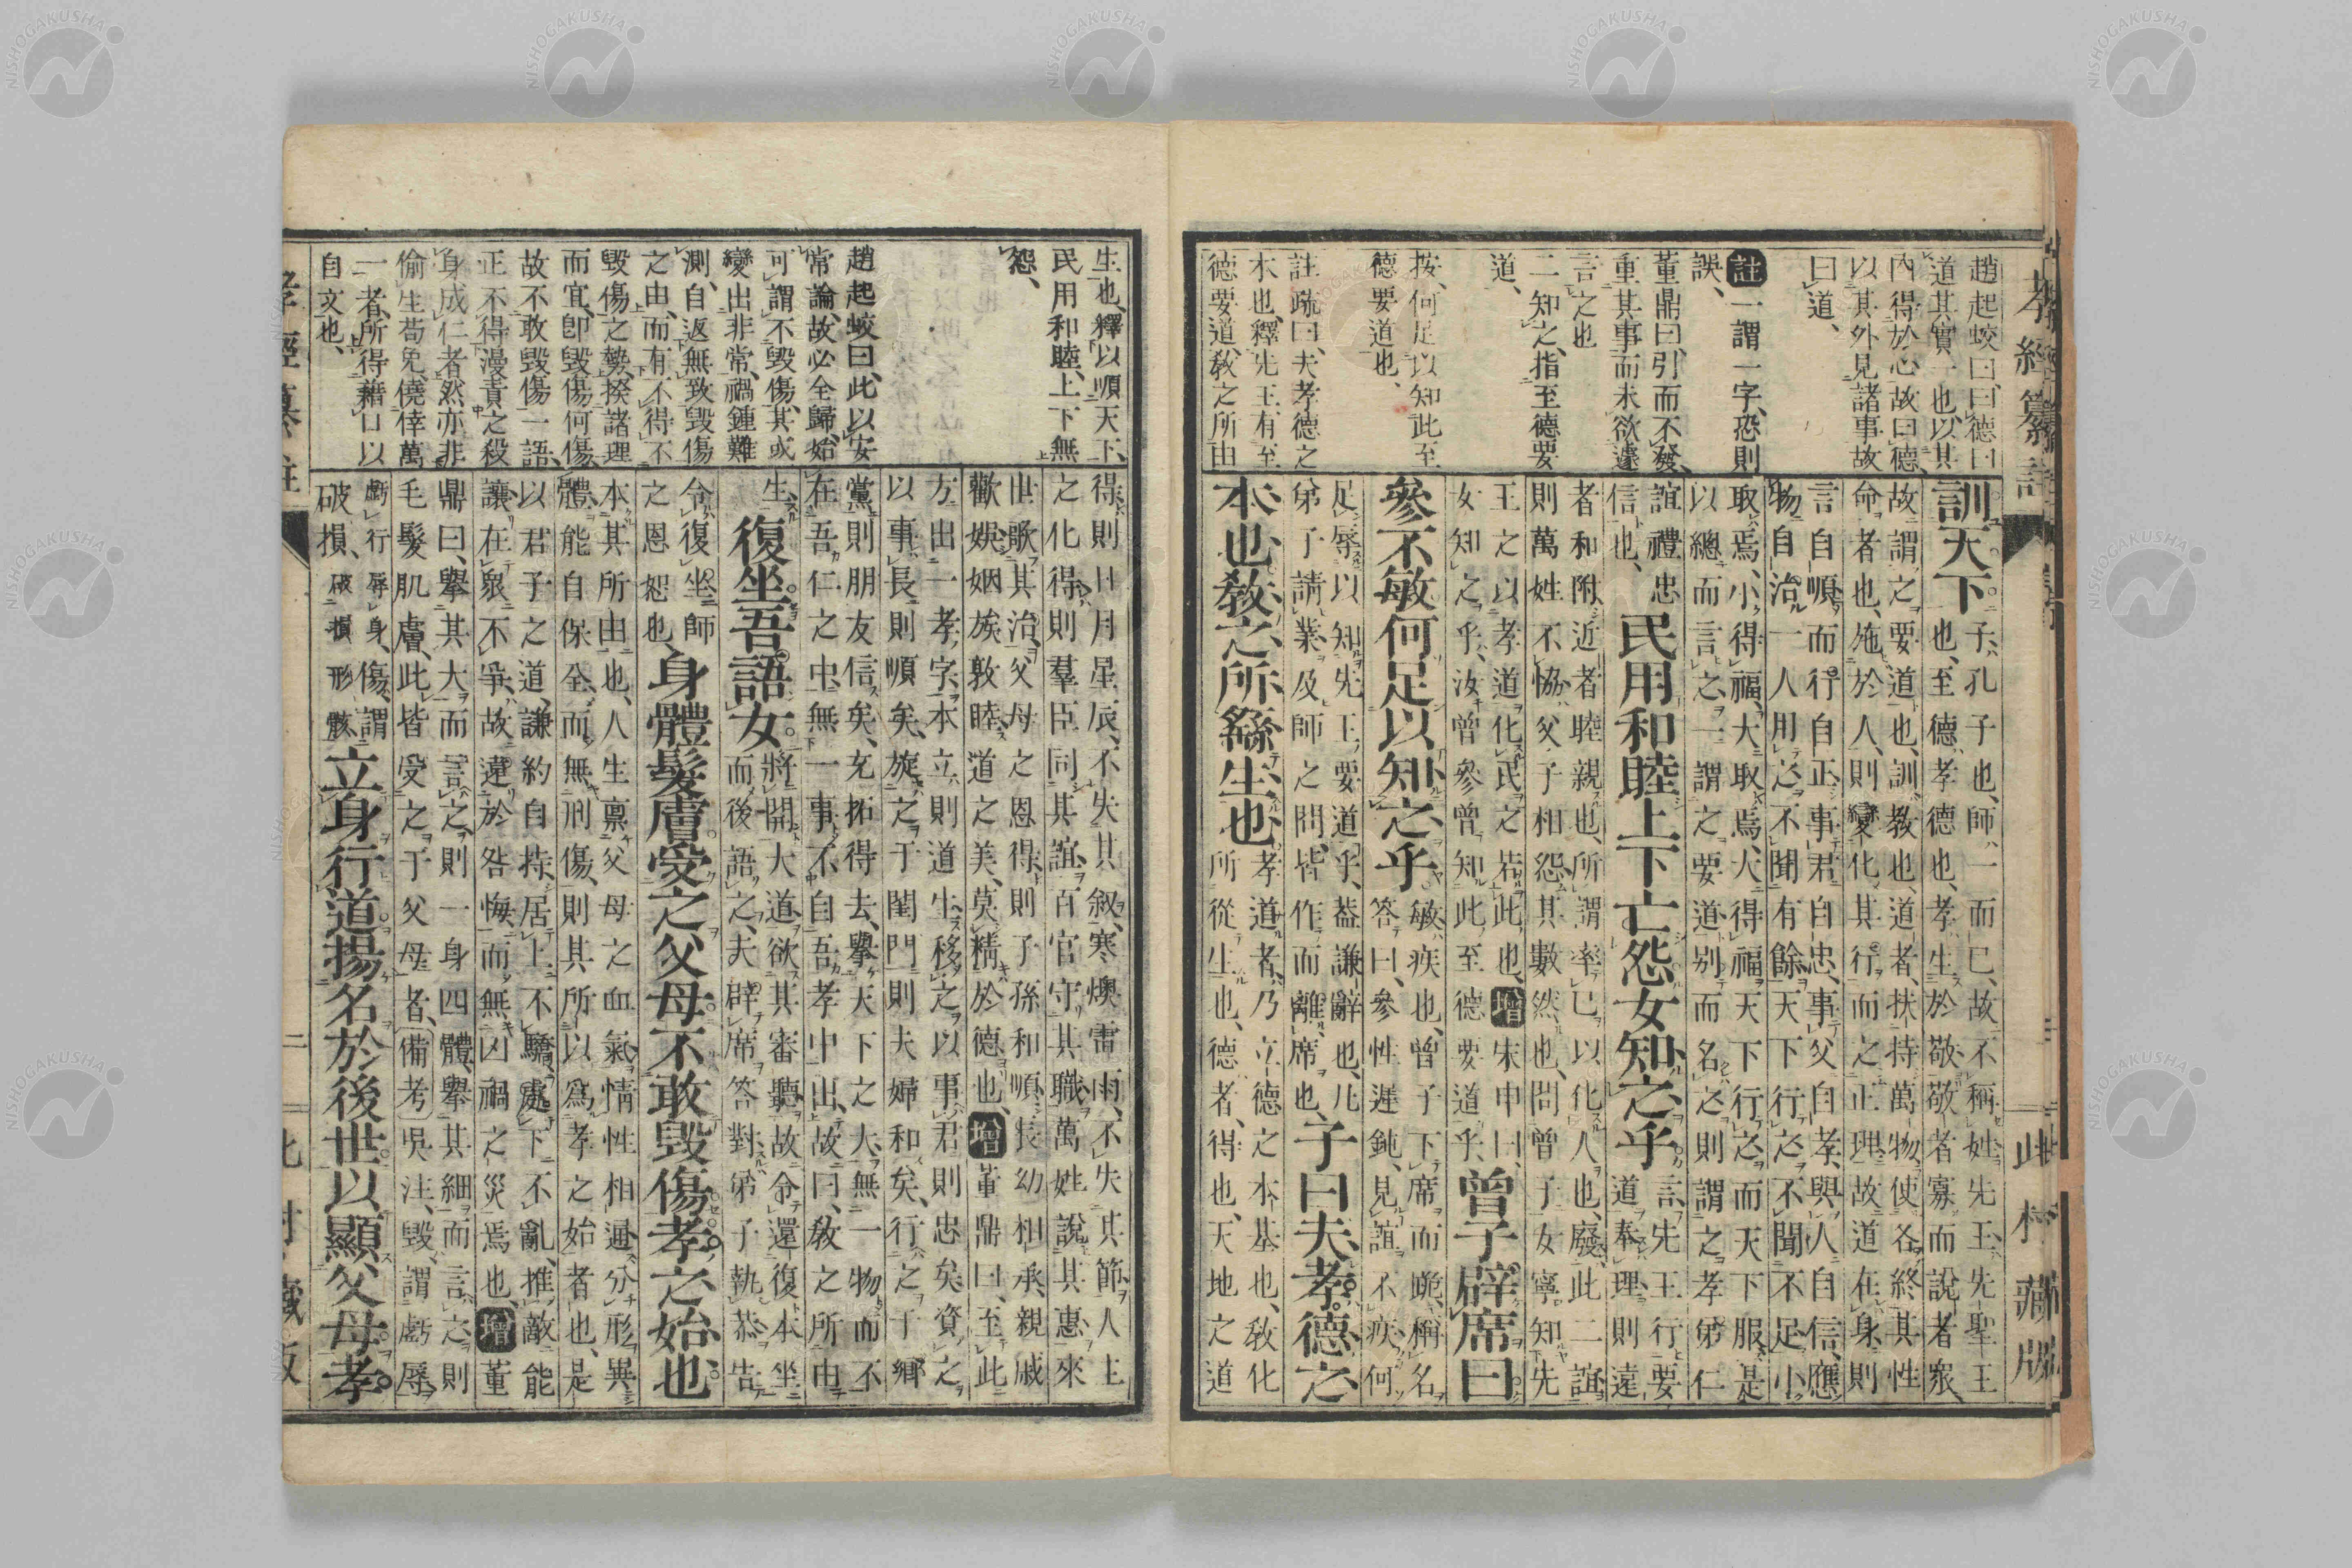 孝經纂註
此村藏版
趙起蛟曰、曰德曰
道其實一也、以其
內得於心故曰德、
以其外見諸事故
曰道、
註一謂一字、恐則
誤、
董鼎曰、引而不發、
重其事而未欲遽
言之也
二知之、指至德要
道、
按、何足以知此至
德要道也、
註疏曰、夫孝德之
本也、釋先王有至
德要道、敎之所由
訓天下
子、孔子也、師一而已、故不稱姓、先王、先聖王
也、至德、孝德也、孝生於敬、敬者寡而說者衆、
故謂之要道也、訓、敎也、道者、扶持萬物、使各終其性
命者也、施於人、則變化其行而之正理、故道在身、則
言自順而行自正、事君自忠、事父自孝、與人自信、應
物自治、一人用之、不聞有餘、天下行之、不聞不足、小
取焉、小得福、大取焉、大得福、天下行之、而天下服、是
以總而言之、一謂之要道、別而名之、則謂之孝弟仁
誼禮忠
信也、
民用和睦上下亡怨女知之乎
言、先王行要
道奉理、則遠
者和附、近者睦親也、所謂率己以化人也、廢此二誼
則萬姓不協、父子相怨、其數然也、問曾子女寧知先
王之以孝道化民之若此也、增朱申曰、
女知之乎、汝曾參曾知此至德要道乎、
曾子辟席曰
參不敏何足以知之乎
敏疾也、曾子下席而跪、稱名
答曰、參性遲鈍、見誼不疾、何
足辱以知先王要道乎、蓋謙辭也、凡
弟子請業、及師之問、皆作而離席也、
子曰夫孝德之
本也敎之所繇生也
孝道者、乃立德之本基也、敎化
所從生也、德者、得也、天地之道
生也、釋以順天下、
民用和睦、上下無
怨、
趙起蛟曰、此以安
常論、故必全歸、始
可謂不毀傷、其或
變出非常、禍鍾難
測、自返無致毀傷
之由、而有不得不
毀傷之勢、揆諸理
而宜、卽毀傷何傷、
故不敢毀傷一語、
正不得漫責之殺
身成仁者、然亦非
偷生苟免、僥倖萬
一者、所得藉口以
自文也、
得則日月星辰、不失其叙、寒燠雷雨、不失其節、人主
之化得、則羣臣同其誼、百官守其職、萬姓說其惠、來
世歌其治、父母之恩得、則子孫和順、長幼相承、親戚
歡娛、姻族敦睦、道之美、莫精於德也、增董鼎曰、至此
方出一孝字、本立則道生、移之以事君則忠矣、資之
以事長則順矣、旋之于閨門、則夫婦和矣、行之于鄉
黨則朋友信矣、充拓得去、擧天下之大、無一物而不
在吾仁之中、無一事不自吾孝中出、故曰、敎之所由
生、
復坐吾語女
將開大道、欲其審聽、故令還復本坐
而後語之、夫辟席答對、弟子執恭告
令復坐師
之恩恕也、
身體髮膚受之父母不敢毀傷孝之始也、
本其所由也、人生稟父母之血氣、情性相通、分形異
體、能自保全、而無刑傷、則其所以爲孝之始者也、是
以君子之道、謙約自持、居上不驕、處下不亂、推敵能
讓、在衆不爭、故遠於咎悔、而無凶禍之災焉也、增董
鼎曰、擧其大而言之、則一身四體、擧其細而言之、則
毛髮肌膚、此皆受之于父母者、備考吳注、毀謂虧辱
虧行辱身、傷謂
破損、破損形骸
立身行道揚名於後世以顯父母孝
孝經纂註
二
此村藏版